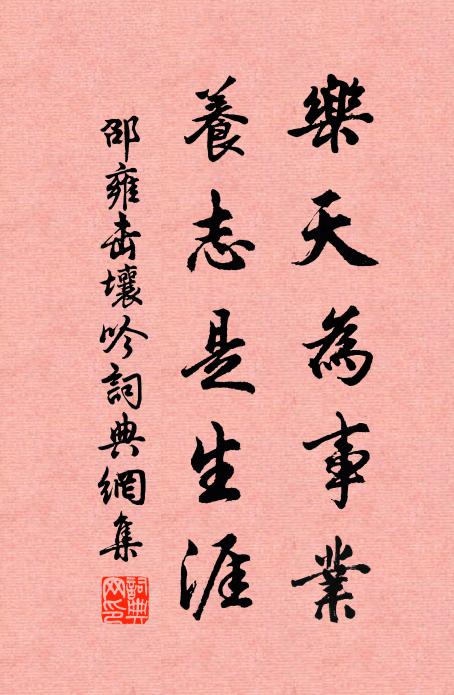 樂天為事業
養志是生涯
邵雍击壤吟詞典網集
詞典網印